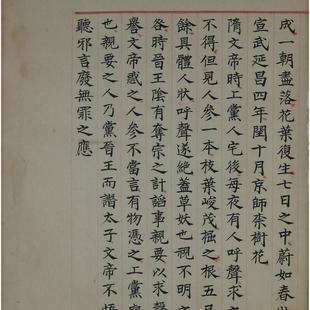 成一朝盡落花葉復生七日之中蔚如春
宣武延昌四年閏十月京師柰樹花
隋文帝時上黨人宅後每夜有人呼聲求
不得但見人參一本枝葉峻茂掘之根五
餘具體人狀呼聲遂絕蓋草妖也視不明之
各時晉王陰有奪宗之計諂事親要以求
譽文帝惑之人參不當言有物憑之上黨
也親要之人乃黨晉王而譖太子文帝不悟
聽邪言廢無罪之應